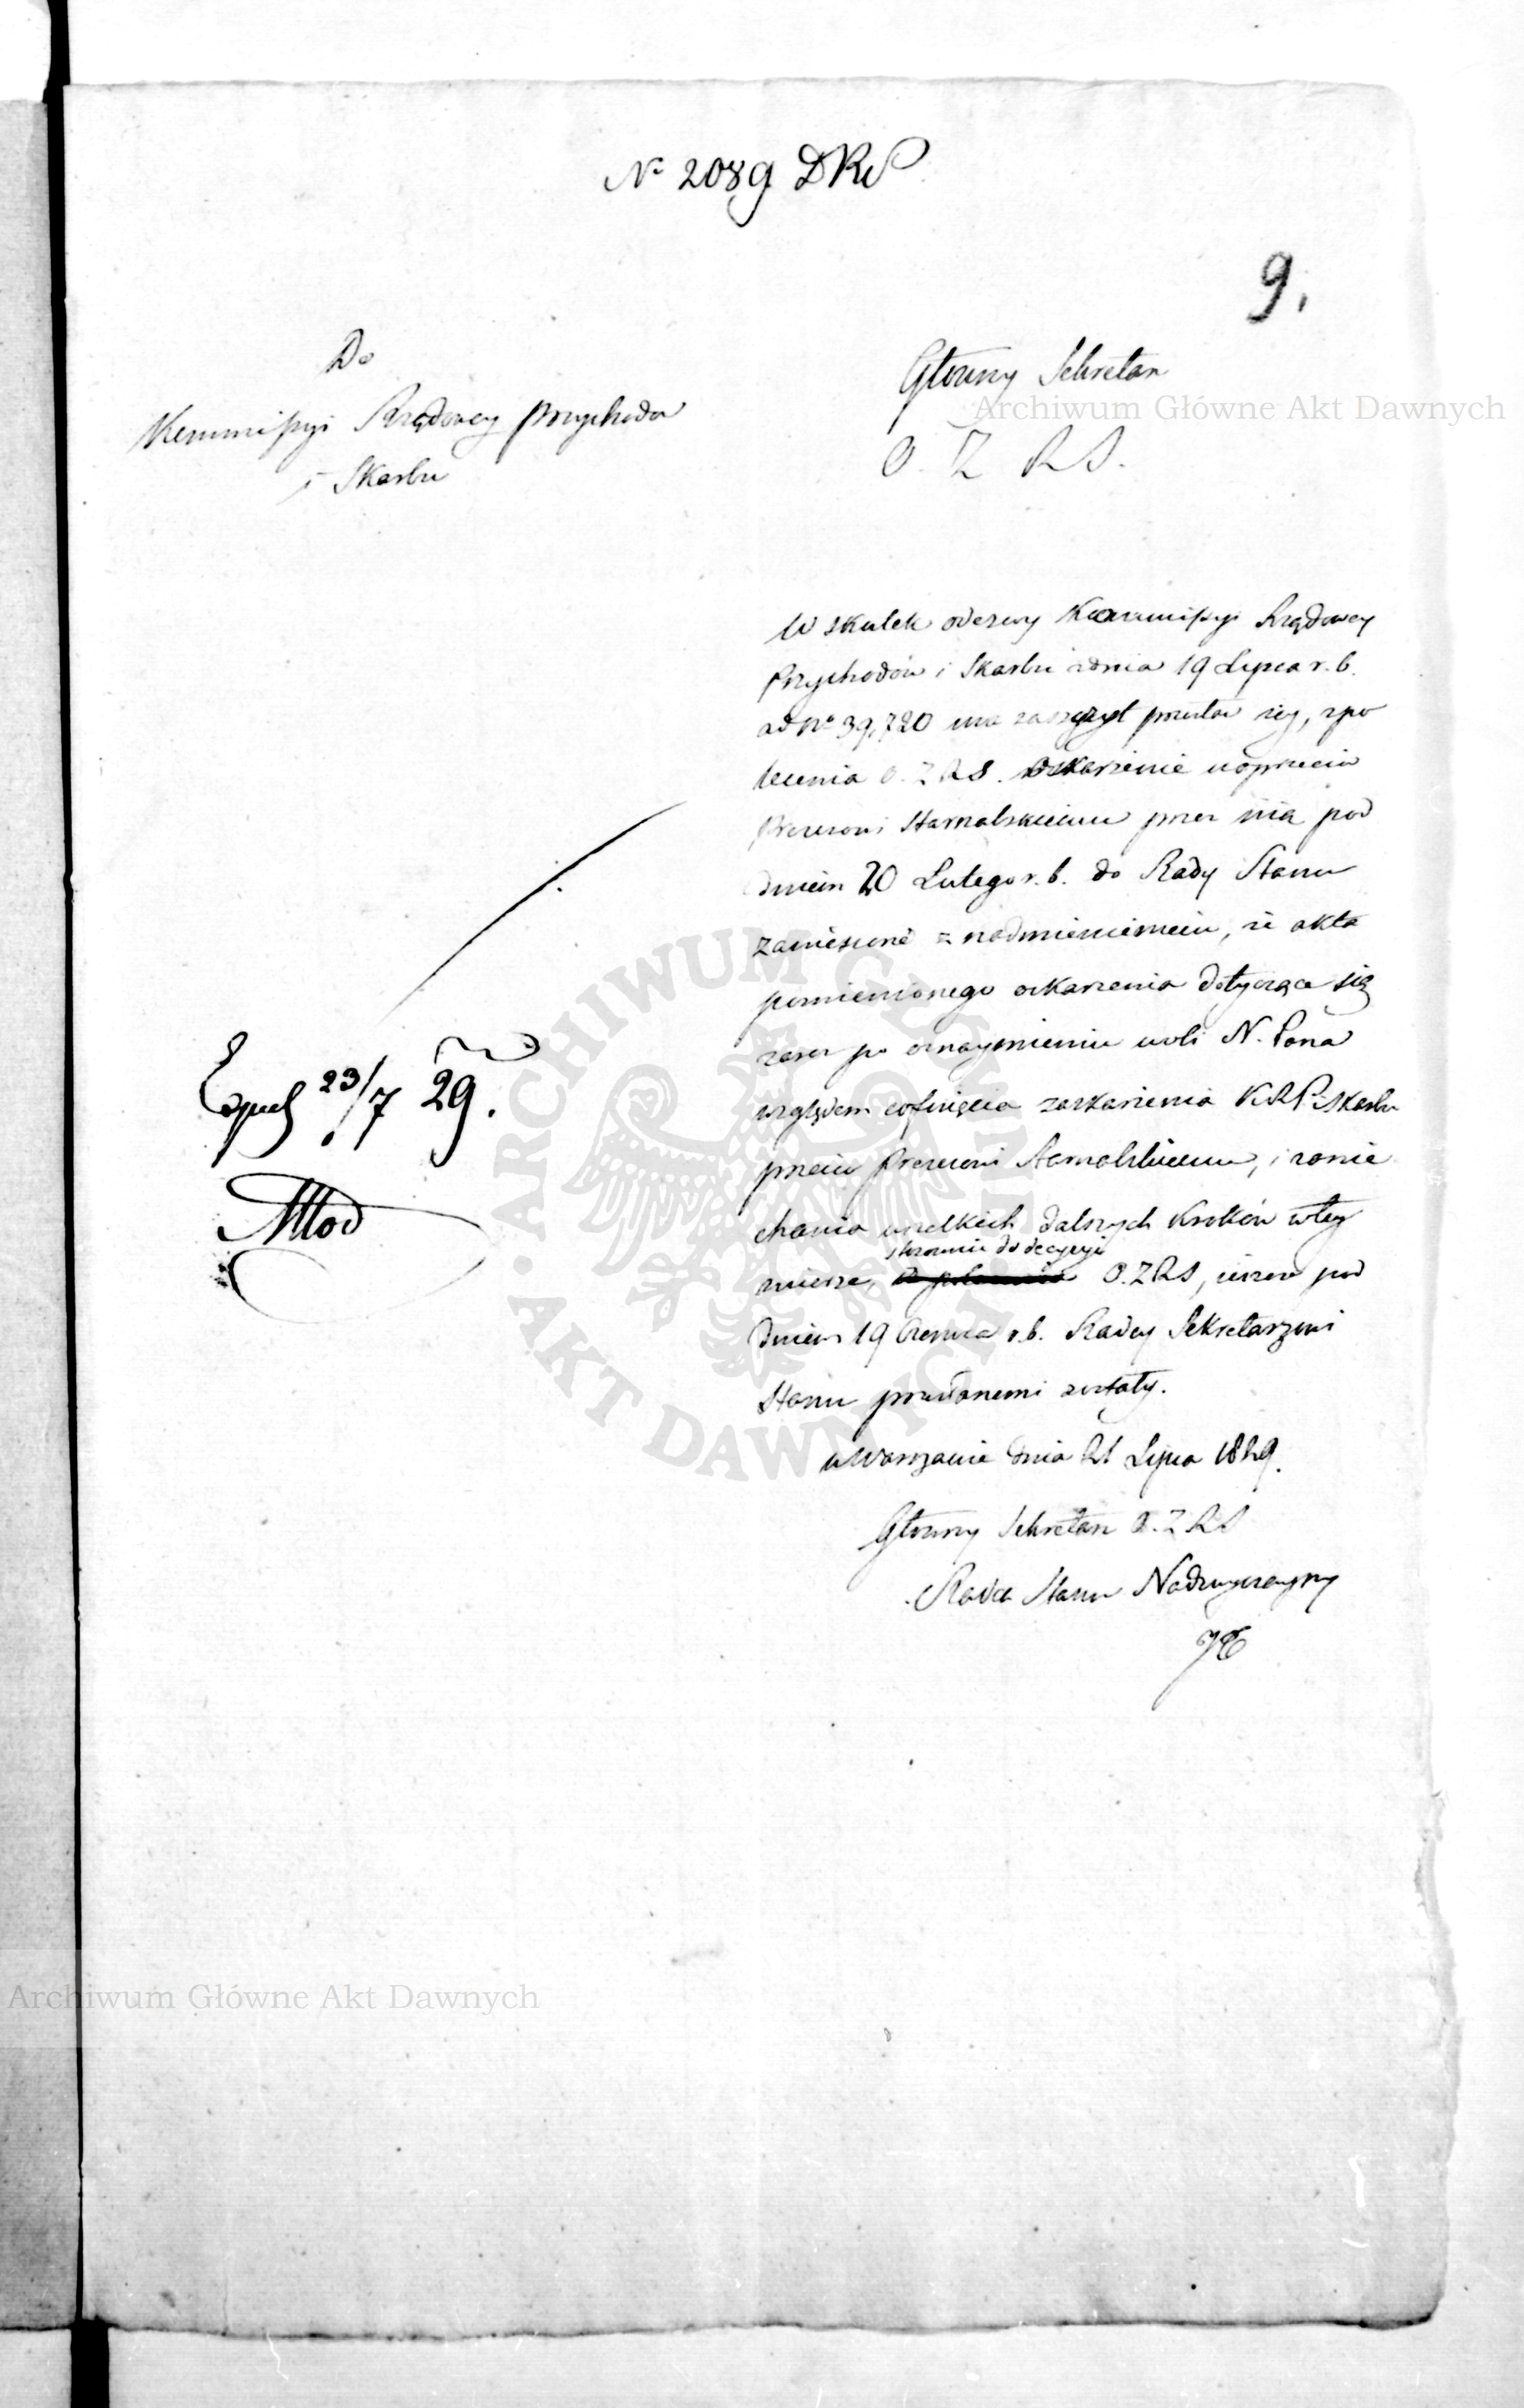 Nº 2089 DRS
9.
Do
Kommissyi Rządowey Przychodów
i Skarbu
Główny Sekretarz
O. Z R S.
W skutek odezwy Kommissyi Rządowey
Przychodów i Skarbu z dnia 19 Lipca r. b.
ad Nº 39,720 ma zaszczyt przesłać iey, z po
lecenia O. Z R S. Oskarżenie naprzeciw
Prezesowi Starnalskiemu przez nią pod
dniem 20 Lutego r. b. do Rady Stanu
zaniesione z nadmienieniem, że akta
pomienionego oskarżenia dotyczące się
zaraz po oznaymieniu woli N. Pana
względem cofnięcia zaskarżenia K R P i Skarbu
przeciw Prezesowi Starnalskiemu, i zanie
chania wszelkich dalszych kroków w tey
mierze, stosownie do decyzyi O. Z R S, ieszcze pod
dniem 19 Czerwca r. b. Radcy Sekretarzowi
Stanu przesłanemi zostały.
w Warszawie dnia 21 Lipca 1829.
Główny Sekretarz O. Z R S
Radca Stanu Nadzwyczayny
Exped 23/7 29.
Młod
ARCHIWUM GŁÓWNE AKT DAWNYCH
Archiwum Główne Akt Dawnych
Archiwum Główne Akt Dawnych